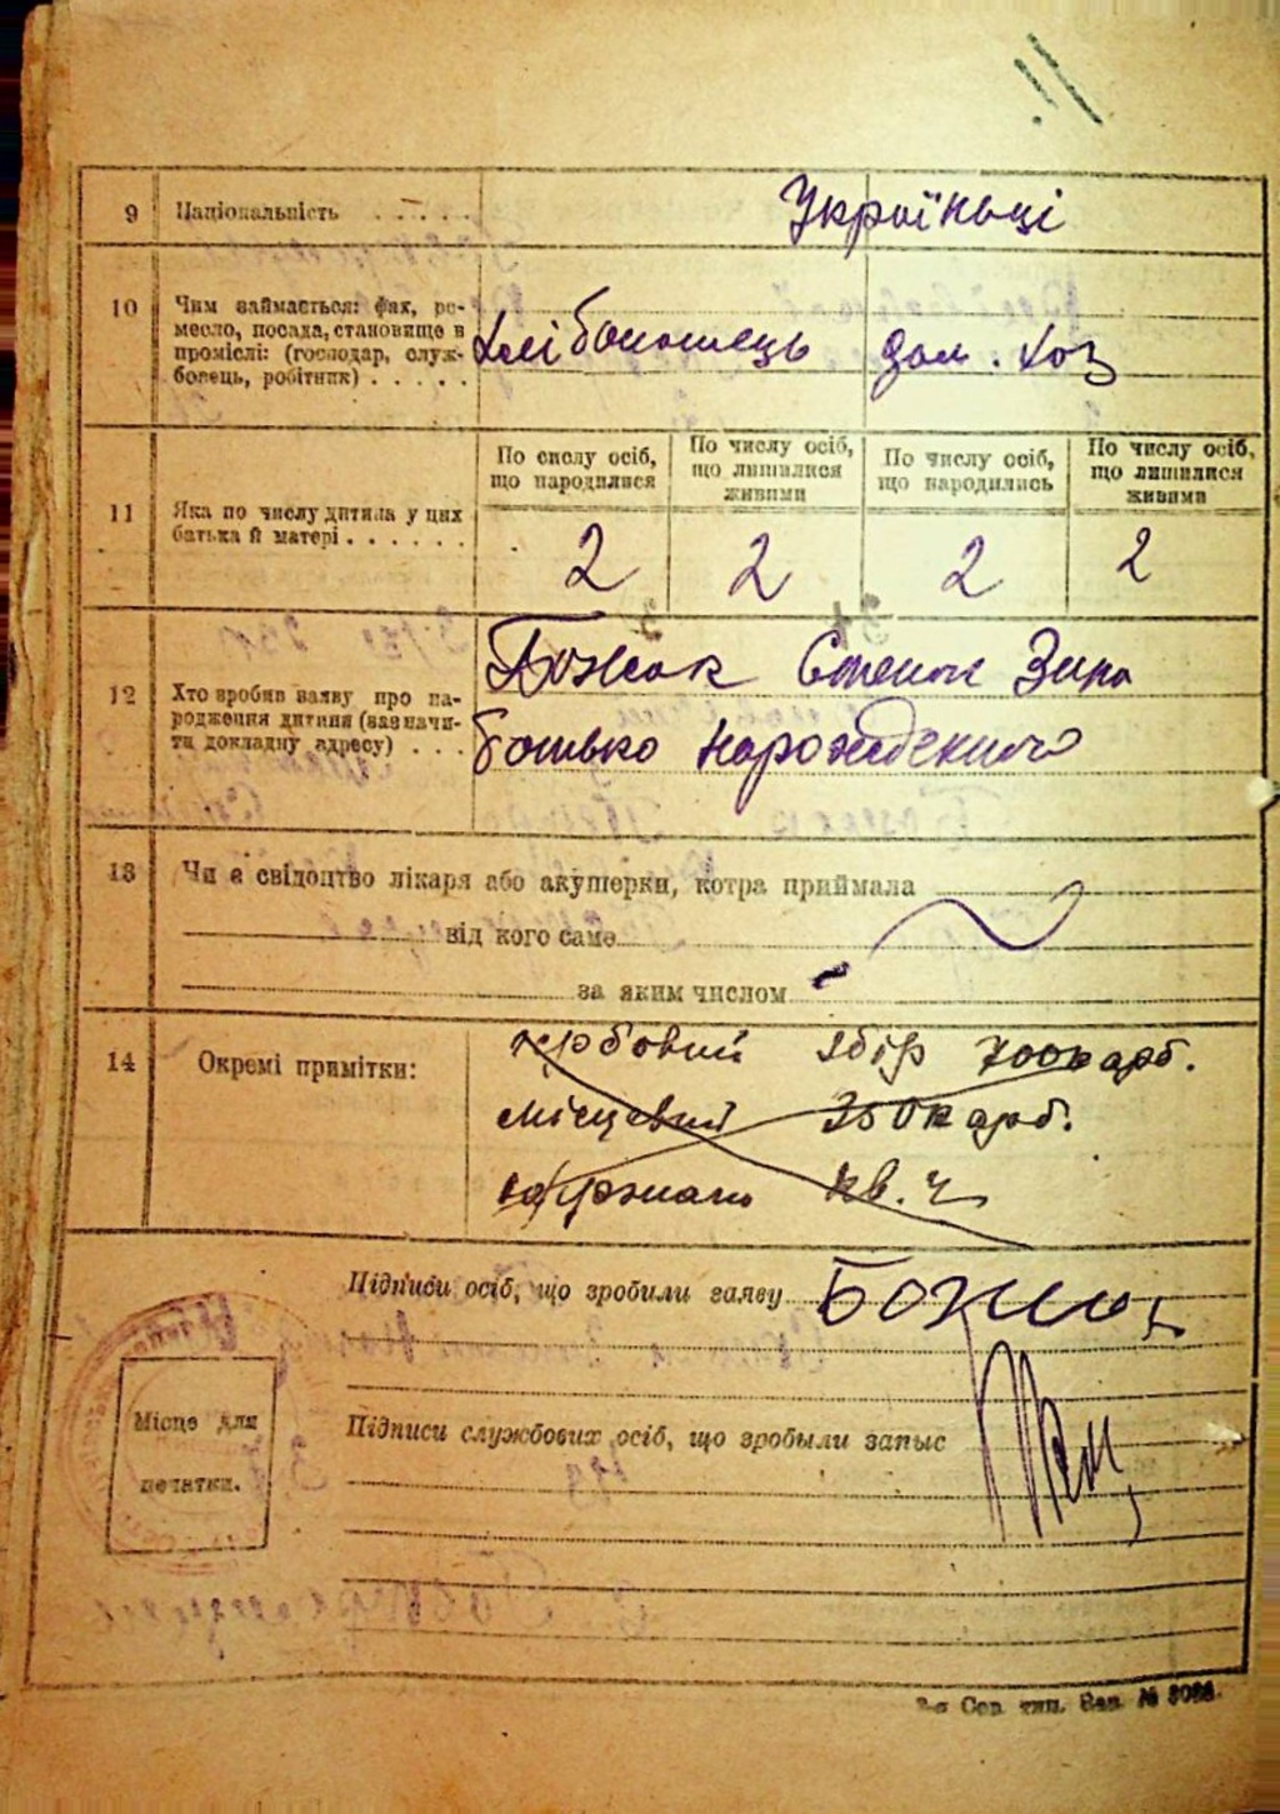 9 Національність . . . . . Українці
10 Чим займається: фах, ре-
месло, посада, становище в
проміслі: (господар, служ-
бовець, робітник) . . . . .
Хлібопашець дом. хоз
По числу осіб, що народилися
По числу осіб, що лишилися живими
По числу осіб, що народились
По числу осіб, що лишилися живими
11 Яка по числу дитина у цих
батька й матері . . . . . .
2 2 2 2
12 Хто зробив заяву про на-
родження дитини (зазначи-
ти докладну адресу) . . .
Божок Степан
батько нарожденого
13 Чи є свідоцтво лікаря або акушерки, котра приймала
від кого саме
за яким числом
14 Окремі примітки:
гербовий збір карб.
місцевий 350 карб.
одержано кв. ч
Підписи осіб, що зробили заяву Божок
Підписи службових осіб, що зробыли запыс
Місце для
печатки.
2-я Сов. тип. Зак. №